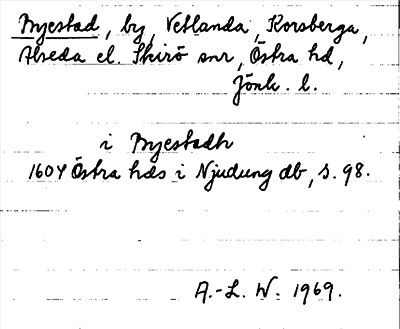 Myestad, by, Vetlanda, Korsberga,
Alseda el. Skirö snr, Östra hd,
Jönk. l.
i Myestadh
1604 Östra hds i Njudung db, s. 98.
A.-L. W. 1969.